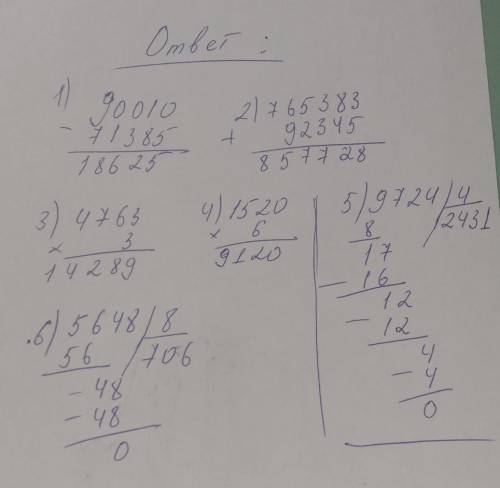 Ответ :
1) 90010
- 71385
18625
2) 765383
+ 92345
857728
3) 4763
× 3
14289
4) 1520
× 6
9120
5) 9724 / 4
8 2431
17
- 16
12
- 12
4
- 4
0
6) 5648 / 8
56 706
- 48
- 48
0